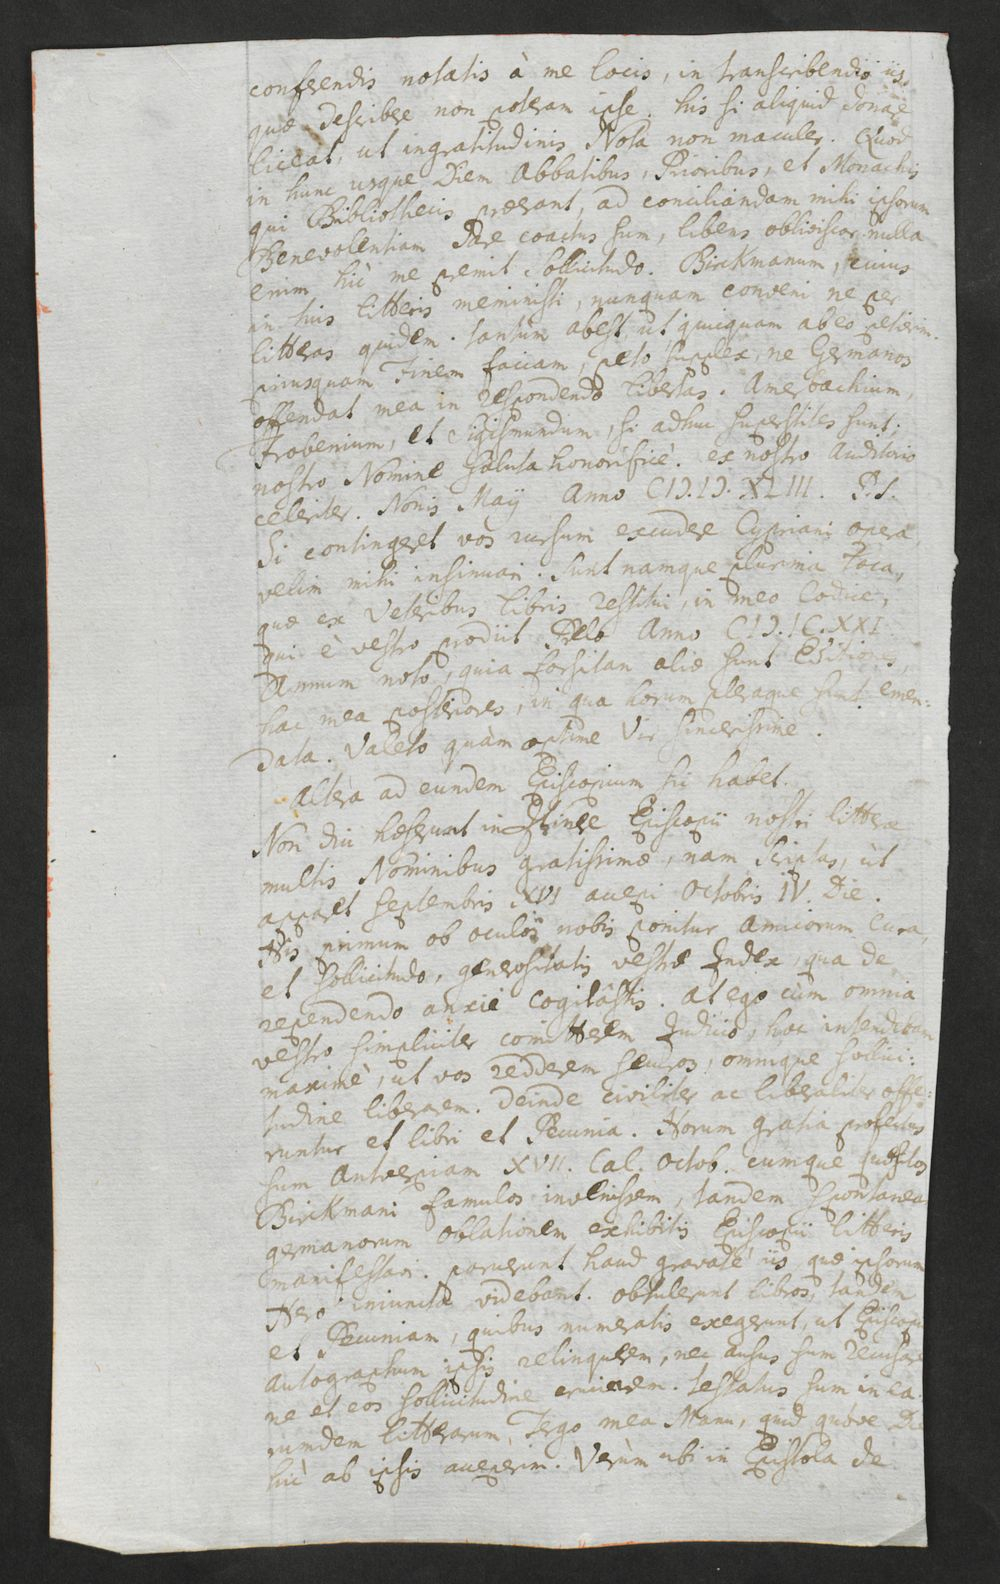 conferendis notatis à me locis, in transcribendis iis,
quæ describere non poteram ipse. his si aliquid donare
liceat, ut ingratitudinis Nota non maculer. Quod
in hunc usque Diem Abbatibus, Prioribus, et Monachis
qui Bibliothecis præerant, ad conciliandam mihi ipsorum
Benevolentiam dare coactus sum, libens obliviscor. nulla
enim hic me premit Sollicitudo. Birckmanum, cuius
in tuis litteris meministi, nunquam conveni ne per
litteras quidem. tantùm abest, ut quicquam ab eo petierim.
priusquam Finem faciam, peto supplex, ne Germanos
offendat mea in respondendo Libertas. Amerbachium,
Frobenium, et Sigismundum, si adhuc superstites sunt,
nostro Nomine saluta honorificè. ex nostro Auditorio
celeriter. Nonis Maÿ Anno CIƆ.IƆ.XLIII. P.S.
Si contingeret vos rursum excudere Cypriani opera,
velim mihi insinuari. Sunt namque plurima Loca,
quæ ex Veteribus Libris restitui, in meo Codice,
qui è vestro prodiit Prelo Anno CIƆ.IC.XXI
Annum noto, quia forsitan aliæ sunt Editiones,
hac mea posteriores, in qua horum pleraque sunt emen:
data. Valeto quàm optime Vir sincerissime.
Altera ad eundem Episcopium sic habet.
Non diu hæserunt in Itinere Episcopii nostri litteræ
multis Nominibus gratissimæ, nam Scriptas, ut
apparet Septembris XVI accepi Octobris IV. Die.
His primum ob oculos nobis ponitur amicorum Cura,
et Sollicitudo, generositatis vestræ Index, qua de
rependendo anxie cogitâstis. at ego cùm omnia
vestro simpliciter comitterem Judicio, hoc intendebam
maximè, ut vos redderem securos, omnique sollici:
tudine liberarem. deinde civiliter ac liberaliter offe:
runtur et libri et Pecunia. Horum gratia profectus
sum Antverpiam XVII. Cal. Octob. cumque
Birckmani famulos invenissem, tandem spontanea
germanorum oblationem exhibitis Episcopii litteris
manifestavi. paruerunt haud gravatè iis quæ ipsorum
Hero iniuncta videbant. obtulerunt libros, tandem
et Pecuniam, quibus numeratis exegerunt, ut Episcopii
autographum ipsis relinquerem, nec ausus sum recusare
ne et eos sollicitudine cruciarem. testatus sum in ea
rumdem litterarum, Tergo mea Manu, quid quove Die
hic ab ipsis acceperim. Verùm ubi in Epistola de